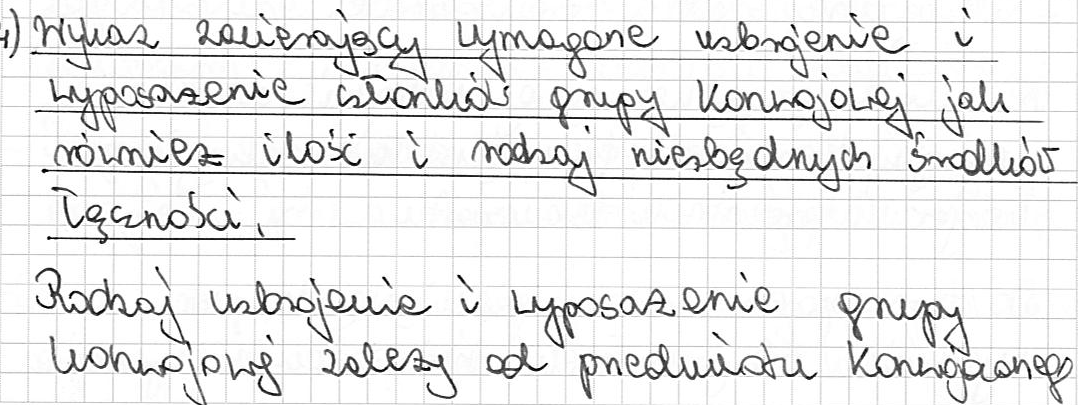 4) Wykaz zawierający wymagane uzbrojenie i
wyposażenie członków grupy konwojowej jak
również ilość i rodzaj niezbędnych środków
łączności.
Rodzaj uzbrojenie i wyposażenie grupy
konwojowej zależy od przedmiotu konwojowanego